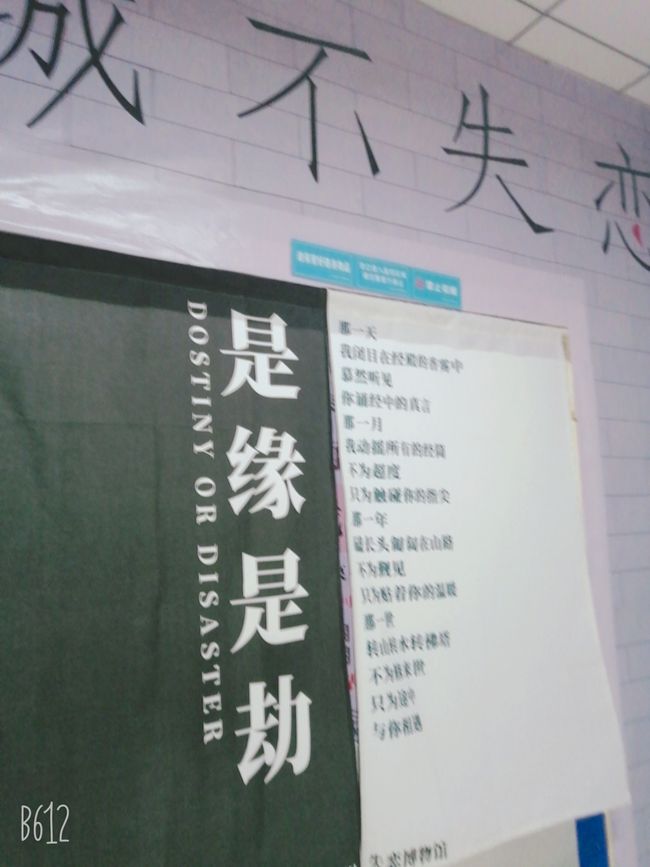 城不失恋
禁止吸烟
是缘是劫
DOSTINY OR DISASTER
那一天
我闭目在经殿的香雾中
蓦然听见
你诵经中的真言
那一月
我动摇所有的经筒
不为超度
只为触碰你的指尖
那一年
磕长头匍匐在山路
不为觐见
只为贴着你的温暖
那一世
转山转水转佛塔
不为修来世
只为途中
与你相遇
失恋博物馆
B612